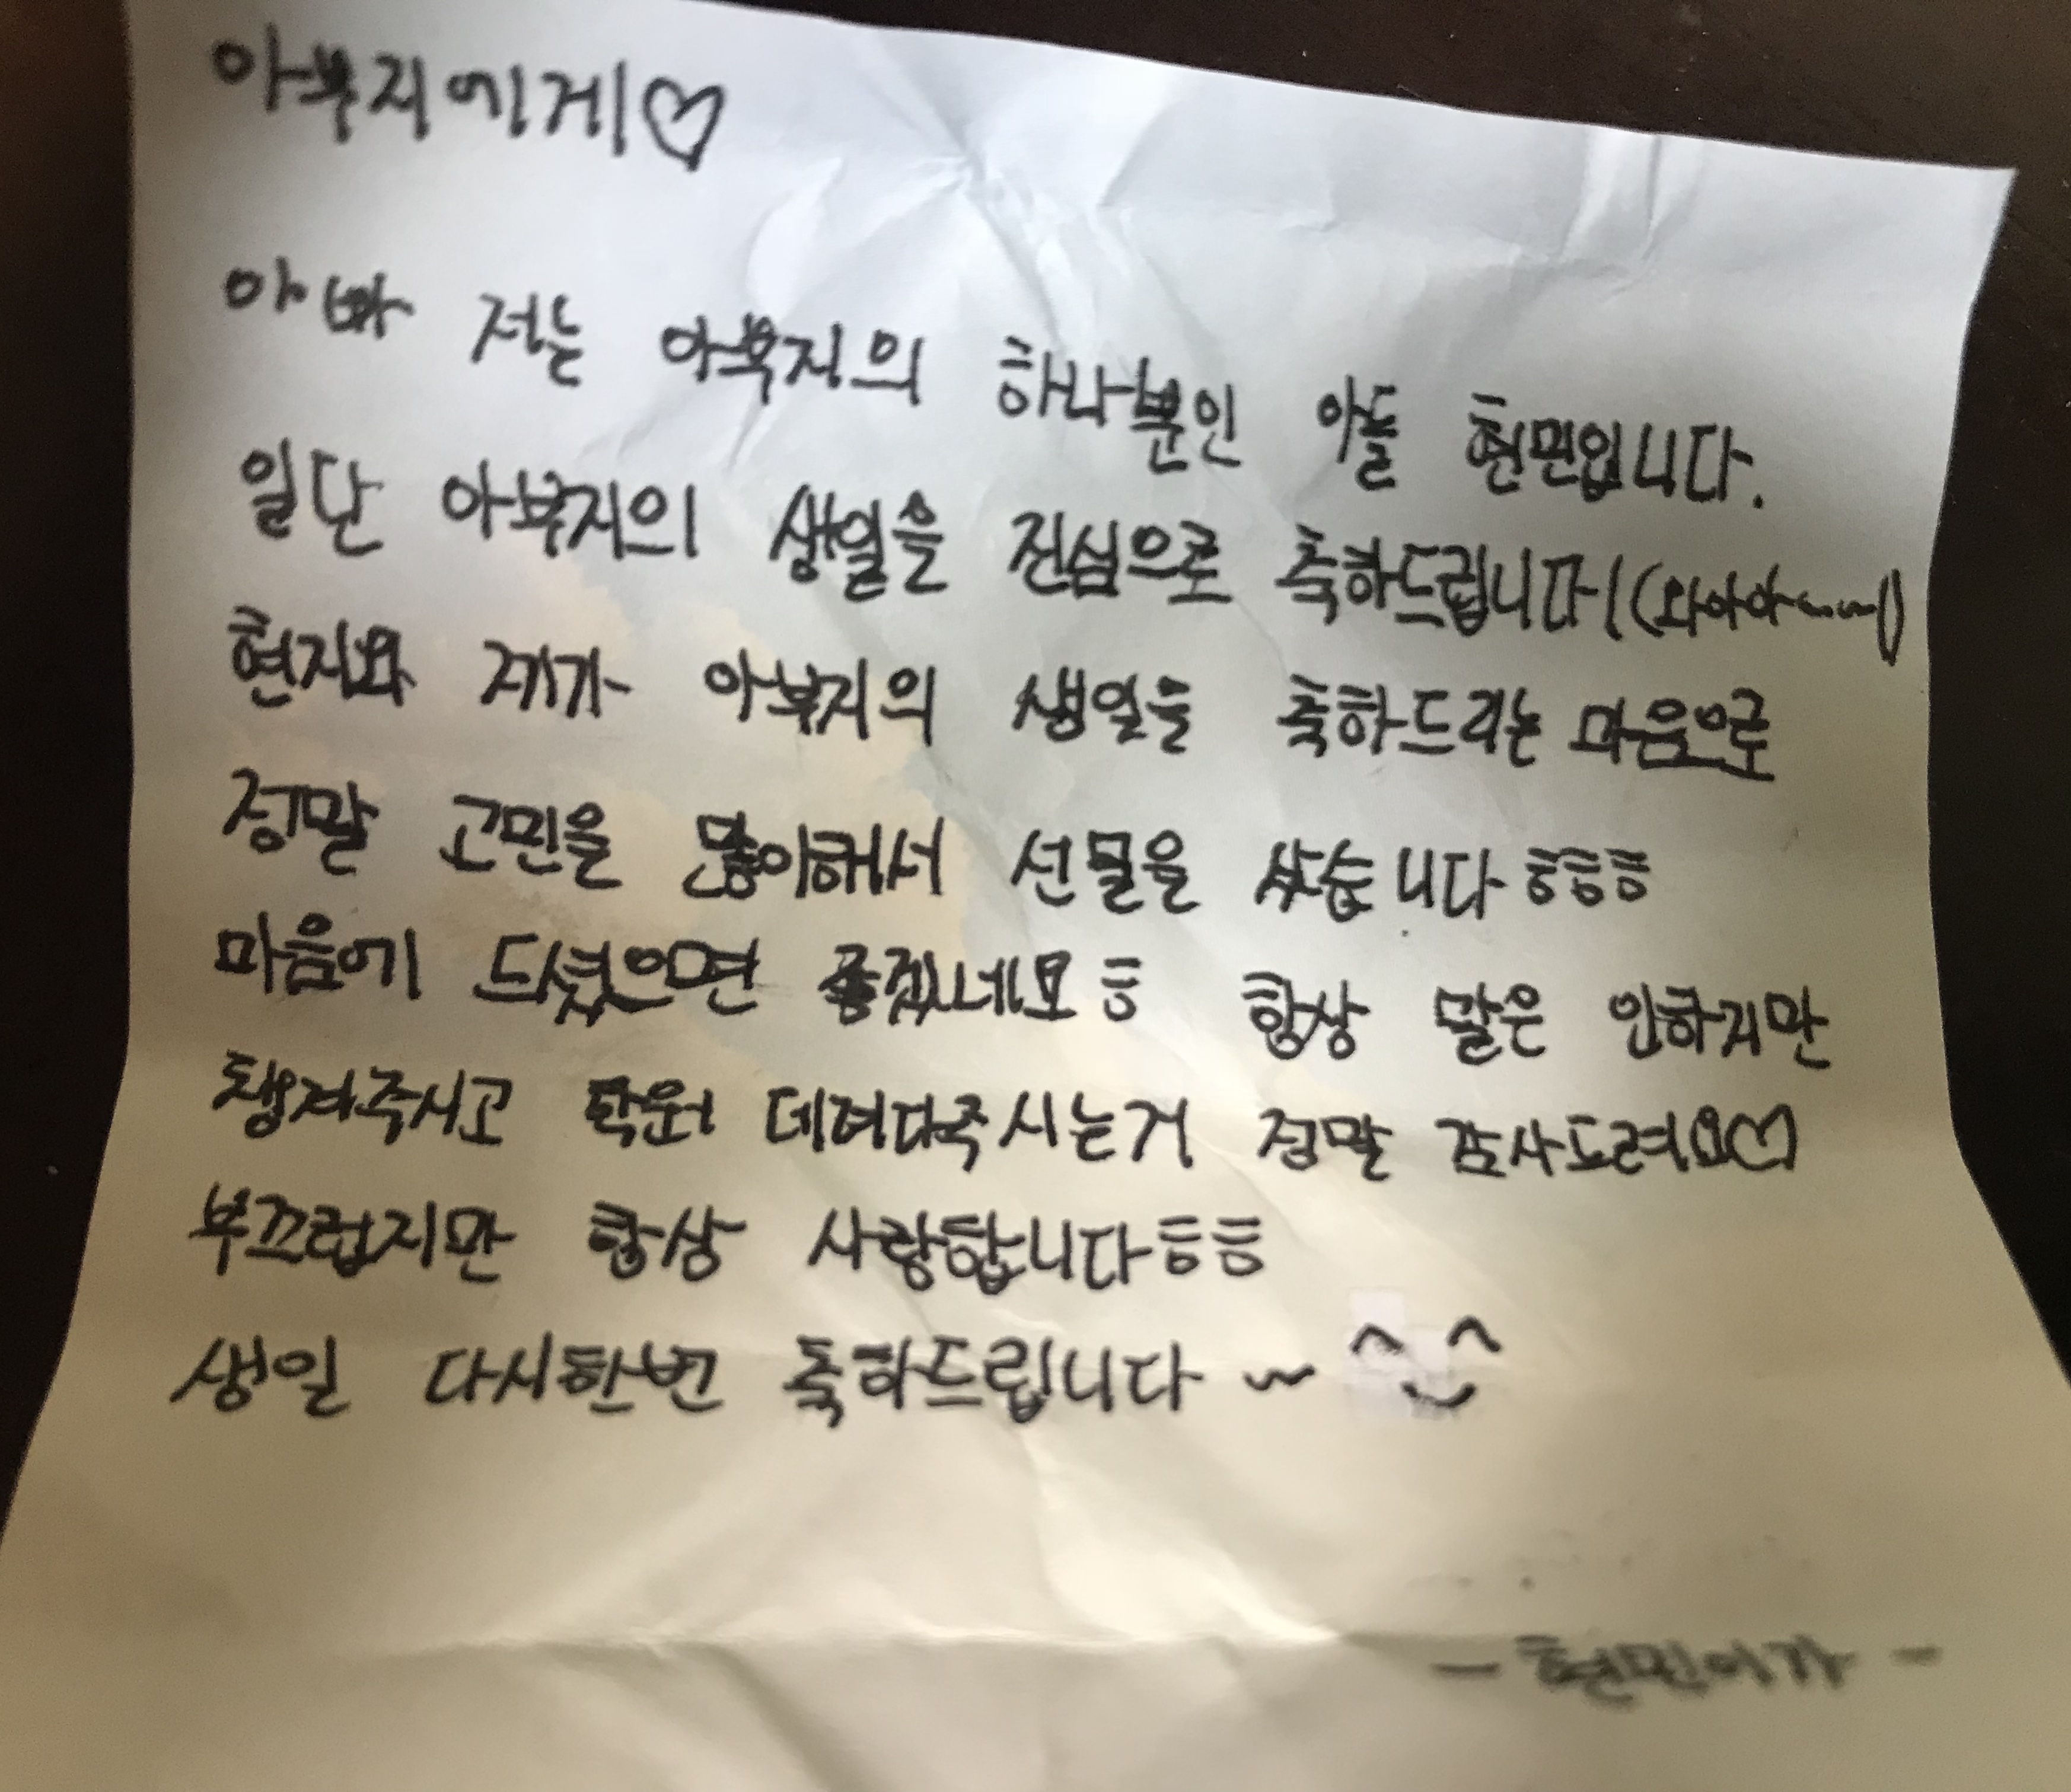 아부지에게♡
아빠 저는 아부지의 하나뿐인 아들 현민입니다.
일단 아부지의 생일을 진심으로 축하드립니다!(와아아~~~)
현지와 제가 아부지의 생일을 축하드리는 마음으로
정말 고민을 많이해서 선물을 샀습니다ㅎㅎㅎ
마음에 드셨으면 좋겠네요ㅎ 항상 말은 안하지만
챙겨주시고 학원 데려다주시는거 정말 감사드려요♡
부끄럽지만 항상 사랑합니다ㅎㅎ
생일 다시한번 축하드립니다~ ^‿^
- 현민이가 -